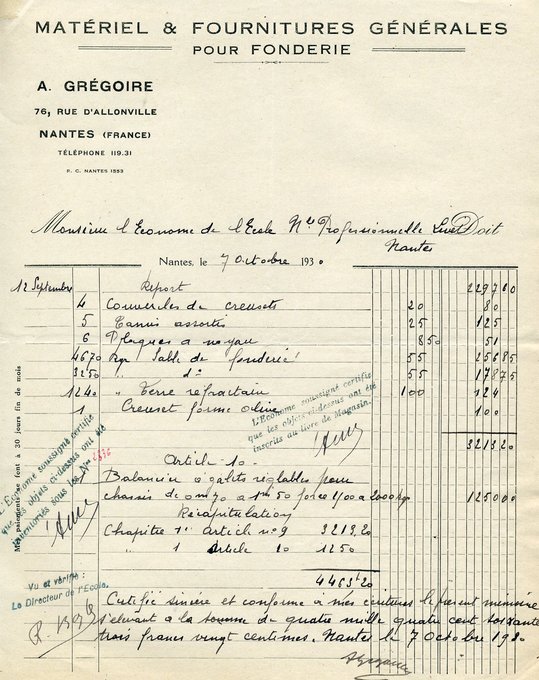 MATÉRIEL & FOURNITURES GÉNÉRALES
POUR FONDERIE
A. GRÉGOIRE
76, RUE D'ALLONVILLE
NANTES (FRANCE)
TÉLÉPHONE 119.31
R. C. NANTES 1553
Monsieur l'Econome de l'Ecole Nle Professionnelle Livet Doit
Nantes
Nantes, le 7 Octobre 1930
12 Septembre Report 2297 10
4 Couvercles de creusets 20 80
5 Tamis assortis 25 125
6 Plaques a noyau 8 50 51
4670 Kgr Sable de fonderie 55 256 85
3250 " do 55 178 75
1240 " Terre refractaire 100 124
1 Creuset forme olive 100
3213 20
L'Econome soussigné certifie
que les objets ci-dessus ont été
inscrits au livre de Magasin.
L'Econome soussigné certifie
que les objets ci-dessus ont été
inventoriés sous les Nos 2836
Mes paiements se font à 30 jours fin de mois
Article 10
1 Balancier a galets réglables pour
chassis de 0m70 a 1m50 force 1400 a 2000 kgs 1250 00
Récapitulation
Chapitre 1er article no 9 3213,20
" 1 article 10 1250
4463,20
Vu et vérifié :
Le Directeur de l'Ecole.
Certifié sincère et conforme a mes écritures le présent mémoire
s'élevant a la somme de quatre mille quatre cent soixante
trois francs vingt centimes. Nantes le 7 Octobre 1930